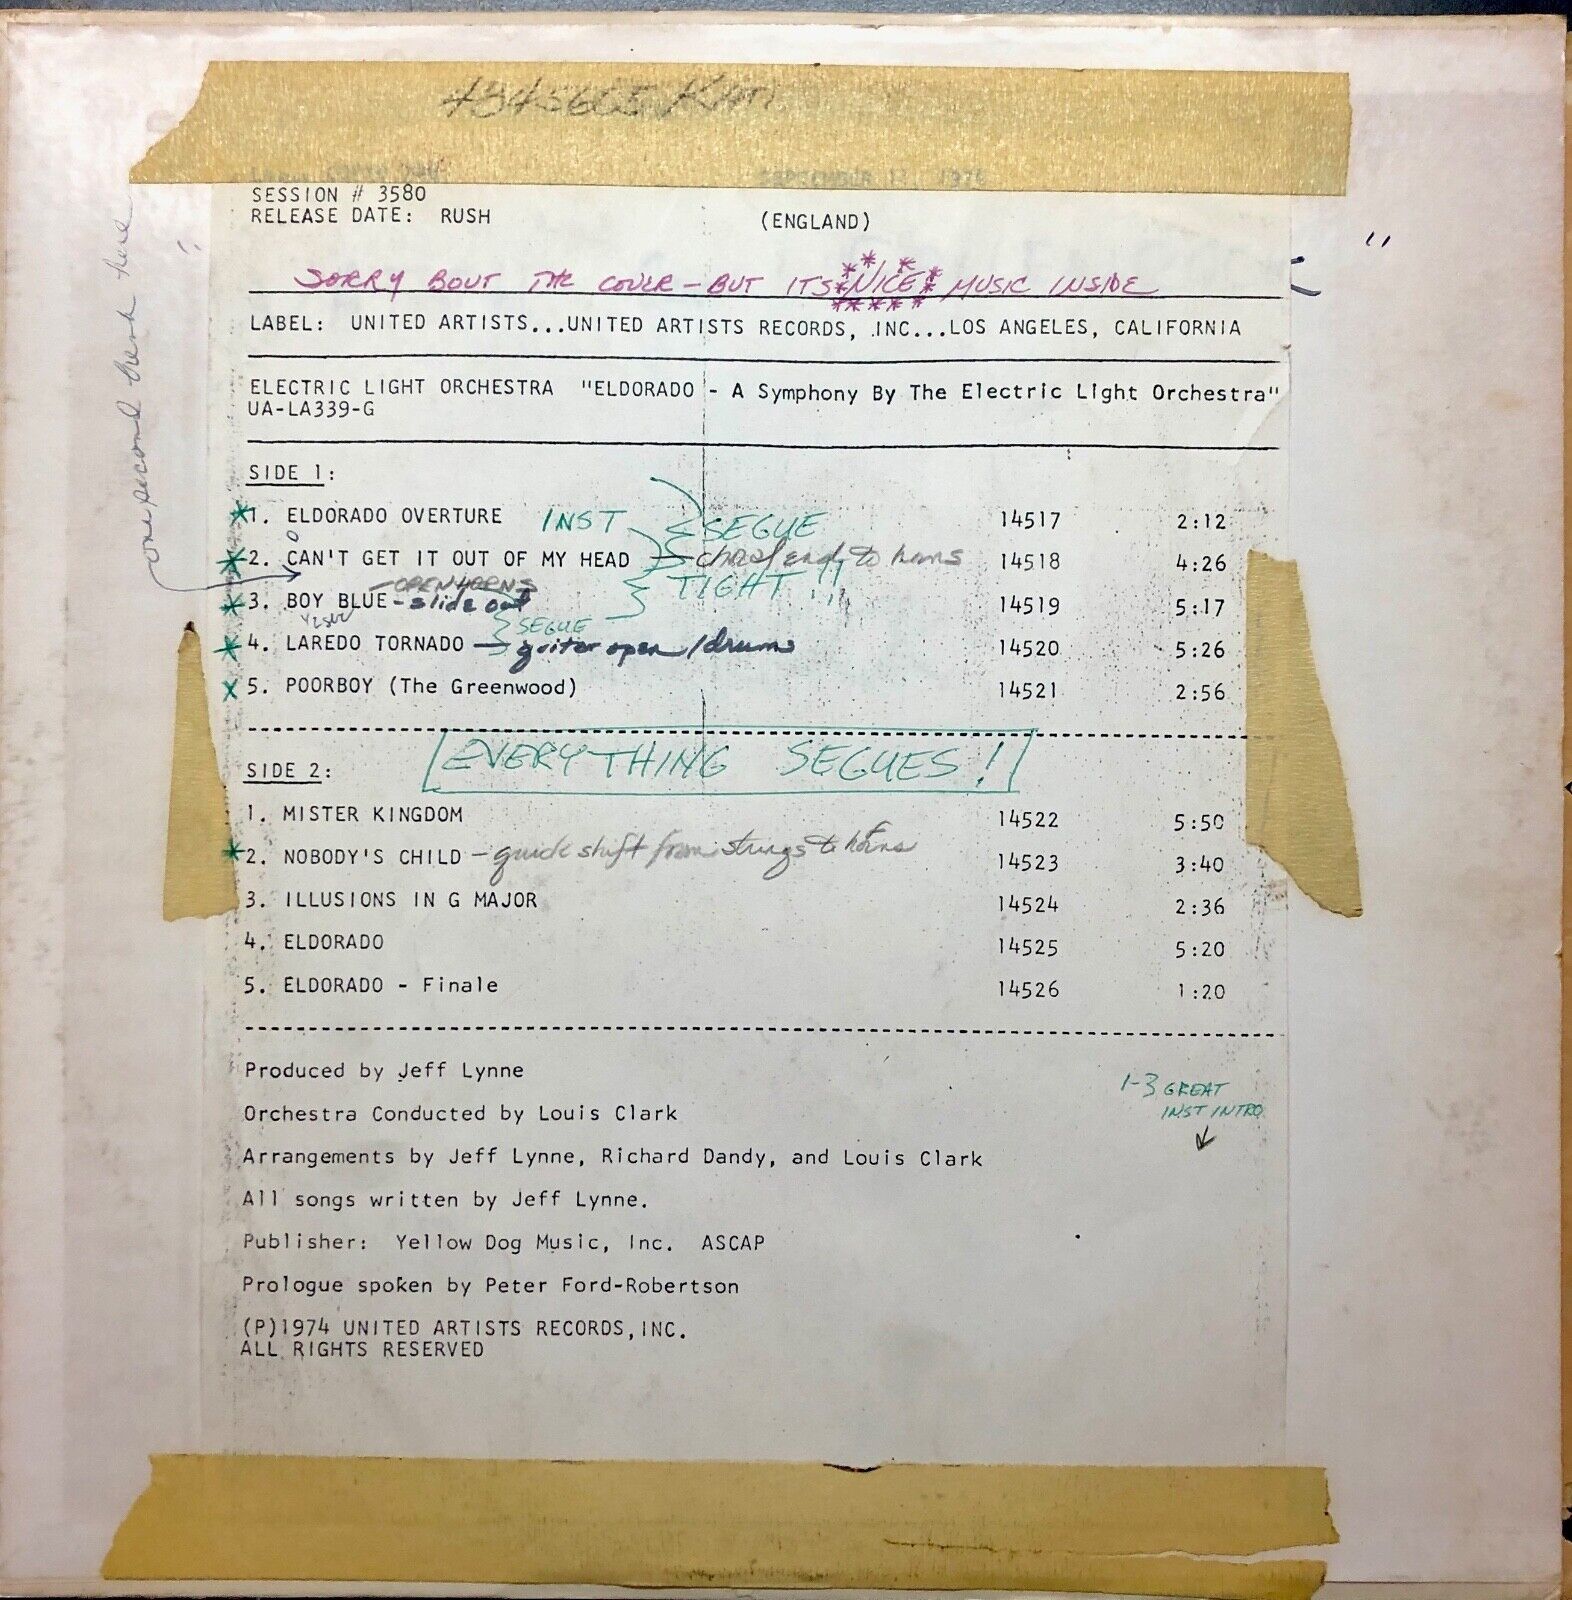 SEPTEMBER
SESSION # 3580
RELEASE DATE: RUSH (ENGLAND)
SORRY BOUT THE COVER - BUT ITS *NICE* MUSIC INSIDE
LABEL: UNITED ARTISTS...UNITED ARTISTS RECORDS, INC...LOS ANGELES, CALIFORNIA
ELECTRIC LIGHT ORCHESTRA "ELDORADO - A Symphony By The Electric Light Orchestra"
UA-LA339-G
one second break here
SIDE 1:
*1. ELDORADO OVERTURE INST 14517 2:12
SEGUE
*2. CAN'T GET IT OUT OF MY HEAD - chord end to horns 14518 4:26
TIGHT!!!
- OPEN HORNS
*3. BOY BLUE - slide out 14519 5:17
SEGUE
*4. LAREDO TORNADO - guitar open / drums 14520 5:26
x 5. POORBOY (The Greenwood) 14521 2:56
EVERYTHING SEGUES!
SIDE 2:
1. MISTER KINGDOM 14522 5:50
*2. NOBODY'S CHILD - quick shift from strings to horns 14523 3:40
3. ILLUSIONS IN G MAJOR 14524 2:36
4. ELDORADO 14525 5:20
5. ELDORADO - Finale 14526 1:20
Produced by Jeff Lynne
1-3 GREAT
INST INTRO
Orchestra Conducted by Louis Clark
Arrangements by Jeff Lynne, Richard Dandy, and Louis Clark
All songs written by Jeff Lynne.
Publisher: Yellow Dog Music, Inc. ASCAP
Prologue spoken by Peter Ford-Robertson
(P)1974 UNITED ARTISTS RECORDS, INC.
ALL RIGHTS RESERVED